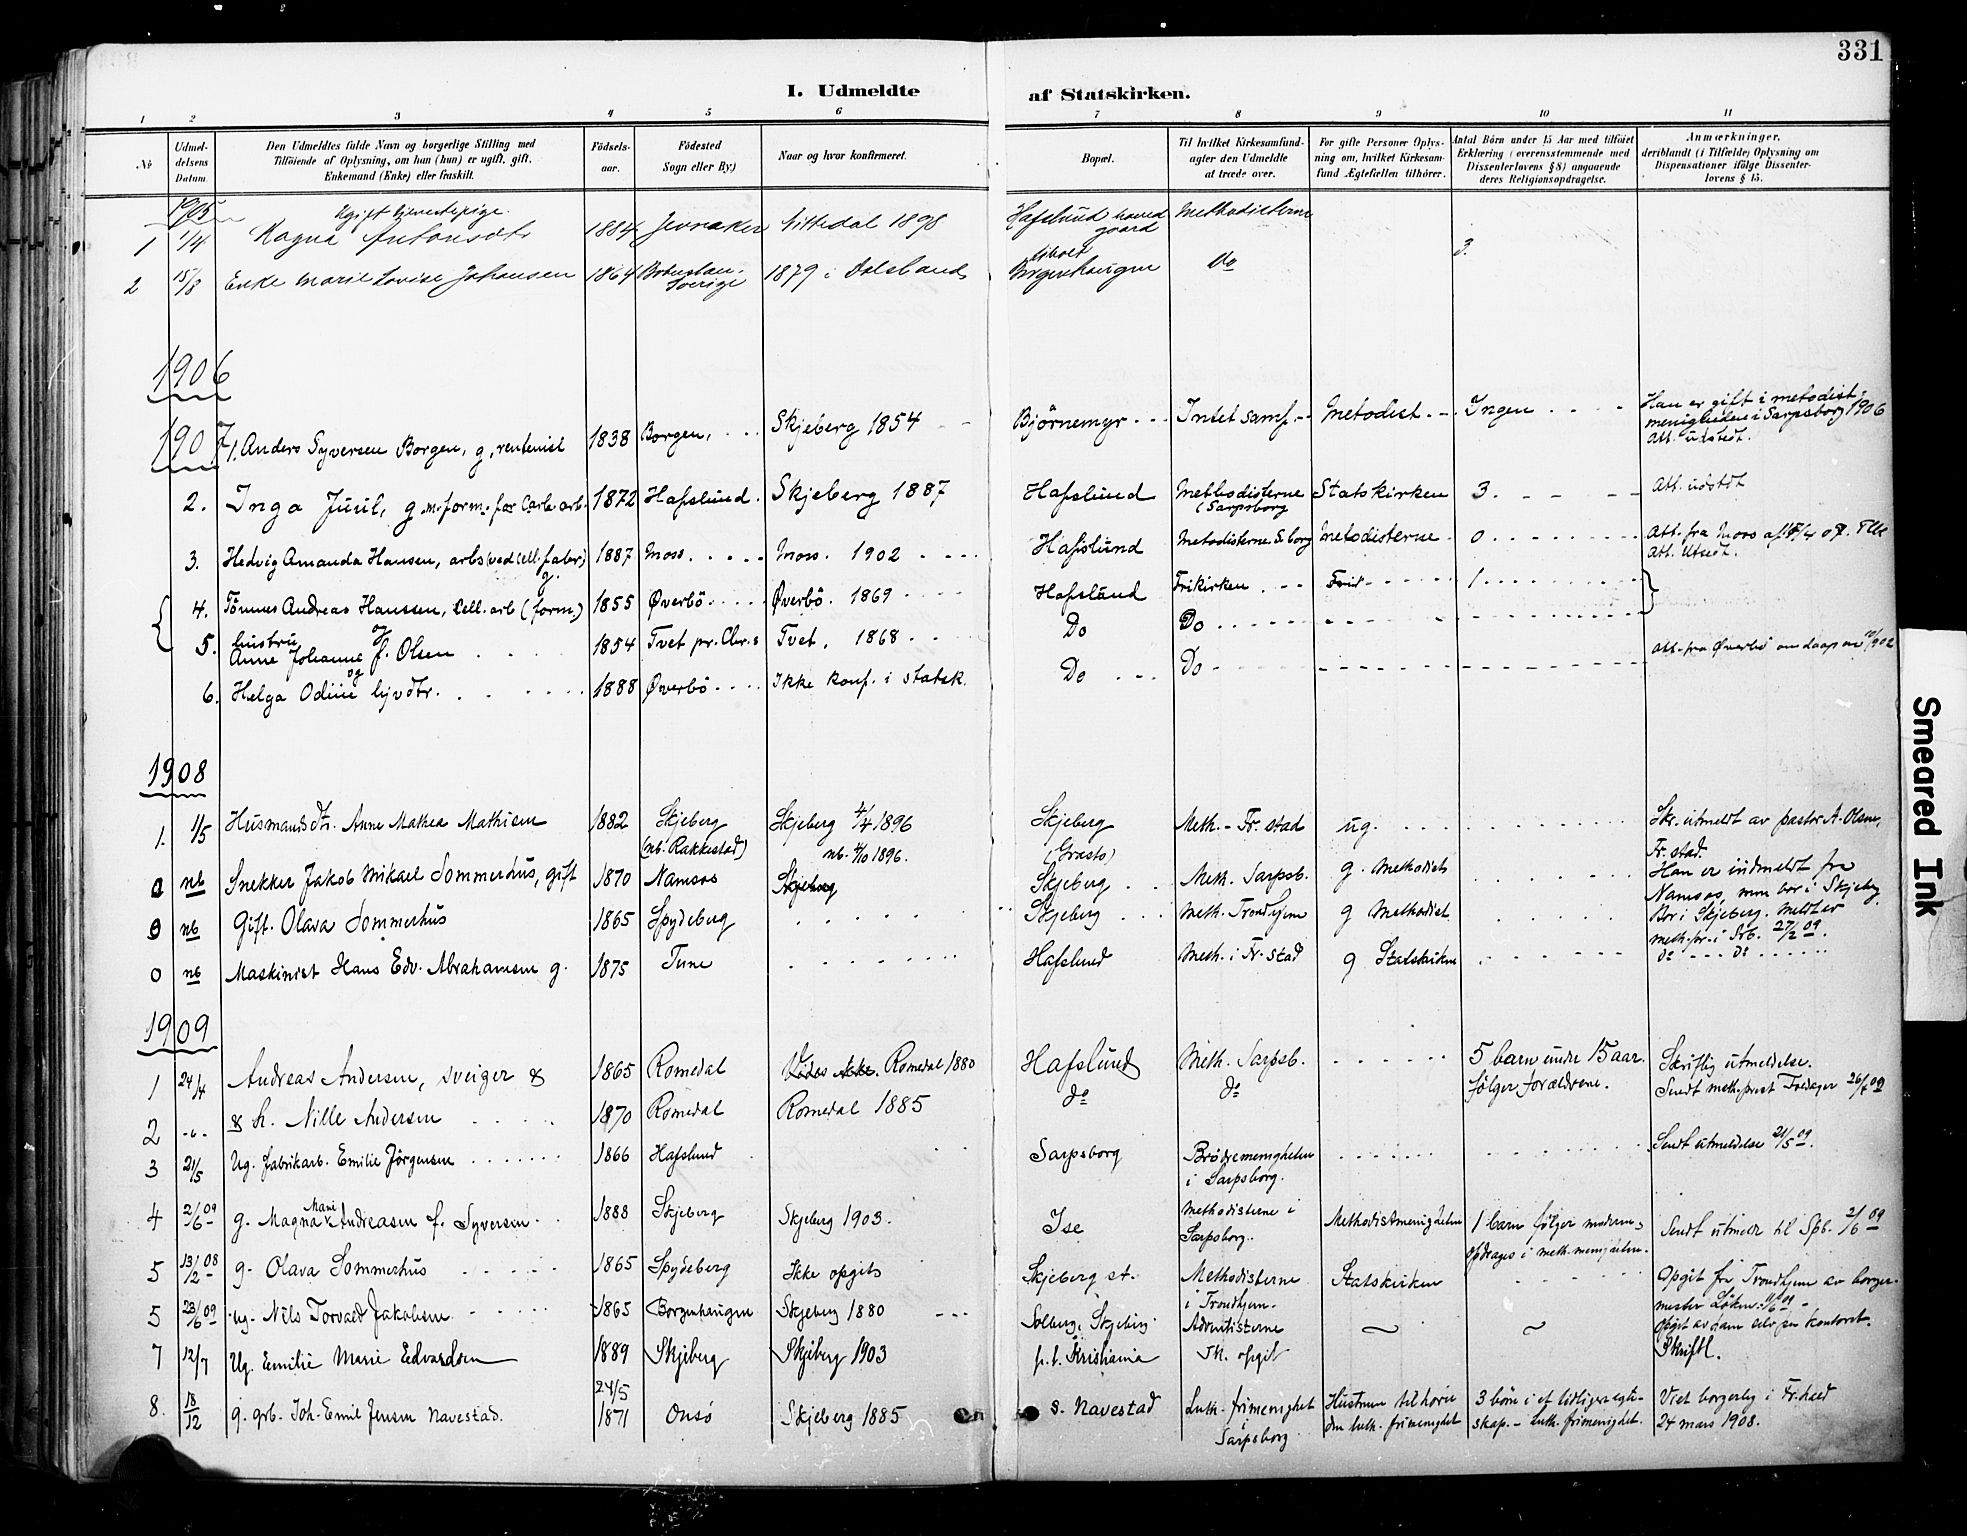 331
I. Udmeldte af Statskirken.
1 2 3 4 5 6 7 8 9 10 11
No
Udmeldelsens Datum.
Den Udmeldtes fulde Navn og borgerlige Stilling med Tilföiende af Oplysning, om han (hun) er ugift, gift, Enkemand (Enke) eller fraskilt.
Födselsaar.
Födested Sogn eller By)
Naar og hvor konfirmeret.
Bopæl.
Til hvilket Kirkesamfund agter den Udmeldte at træde over.
For gifte Personer Oplysning om, hvilket Kirkesamfund Ægtefællen tilhörer.
Antal Börn under 15 Aar med tilföiet Erklæring (overensstemmende med Dissenterlovens § 8) angaaende deres Religionsopdragelse.
Anmærkninger, deriblandt (i Tilfælde) Oplysning om Dispensationer ifölge Dissenterlovens § 15.
1905
Ugift tjenestepige.
1 1/4 Magna Antonsdtr 1884 Jevnaker Nittedal 1898 Hafslund hovedgaard Methodisterne
2 15/8 Enke Marie Lovise Johansen 1864 Bohuslän Sverige 1879 i Dalsland Borgenhaugen Do 3.
1906
1907
1. Anders Syversen Borgen, g, rentenist 1838 Borgen, Skjeberg 1854 Björnemyr Intet samf. Metodist Ingen Han er gift i metodistmenigheden i Sarpsborg 1906 Att. udstedt.
2. Inga Juul, g. m. form. for Carb. arb. 1872 Hafslund. Skjeberg 1887 Hafslund Methodisterne (Sarpsborg Statskirken 3. Att. udstdt
3. Hedvig Amanda Hansen, arb. (ved Cell. fabr) g. 1887 Moss. Moss. 1902 Hafslund Metodisterne S.borg Metodisterne 0 Att. fra Moss af 17/4 07. Att. Utsedt.
4. Tönnes Andreas Hanssen, Cell. arb (form.) 1855 Øverbö. Øverbö. 1869 Hafslund Frikirken Frik 1
5. hustru Anne Johanne f. Olsen 1854 Tvet pr. Chr.s Tvet. 1868 Do Do
og
6. Helga Odine hjvdtr. 1888 Øverbö Ikke konf. i statsk. Do Do Att. fra Øverbö om daap 902
1908
1. 1/5 Husmandsdtr. Anne Mathea Mathisen 1882 Skjeberg (nb. Rakkestad) Skjeberg 4/4 1896 nb. 4/10 1896. Skjeberg (Gråstö) Meth. - Fr.stad ug. Skr. utmeldt av pastor A. Olsen, Fr.stad.
0 nb Snekker Jakob Mikael Sommerhus, gift 1870 Namsos Skjeberg Skjeberg Meth. Sarpsb. g. Methodist Han er indmeldt fra Namsos, men bor i Skjeberg
0 nb Gift. Olava Sommerhus 1865 Spydeberg Skjeberg Meth. Trondhjem g Methodist Bor i Skjeberg. Meldt av meth. pr. i Srb. 27/2 09.
0 nb Maskinist Hans Edv. Abrahamsen g. 1875 Tune Hafslund Meth. i Fr.stad g Statskirken do do
1909
1 24/4 Andreas Andersen, sveiger & 1865 Romedal Vides ikke. Romedal 1880 Hafslund Meth. Sarpsb. 5 barn under 15 aar. følger forældrene. Skriftlig utmeldelse. Sendt meth. prest 26/7 09
2 -"- & h. Nille Andersen 1870 Romedal Romedal 1885 do do
3 21/5 Ug. fabrikarb. Emilie Jörgensen 1866 Hafslund Sarpsborg Brödremenigheten i Sarpsborg. Sendt utmeldelse 21/5 09.
4 2/6 09 g. Magna Marie Andreasen f. Syversen 1888 Skjeberg Skjeberg 1903. Ise Methodisterne i Sarpsborg. Methodistmenigheten 1 barn følger moderen, opdrages i meth. menigheten. Sendt utmeld. til Spb. 2/6 09
5 13/2 08 g. Olava Sommerhus 1865 Spydeberg Ikke opgit Skjeberg st. Methodisterne i Trondhjem. Statskirken Opgit fra Trondhjem av borgermester Løken 11/6 09
5 23/6 09 ug. Nils Torvald Jakobsen 1865 Borgenhaugen Skjeberg 1880 Solberg, Skjeberg. Adventisterne Opgit av ham selv paa kontoret.
7 12/7 Ug. Emilie Marie Edvardsen 1889 Skjeberg Skjeberg 1903 p.t. Kristiania Ik. opgit Skriftl.
8. 18/12 g. grb. Joh. Emil Jensen Navestad. 24/5 1871 Onsö Skjeberg 1885 s. Navestad Luth. frimenighet i Sarpsborg Hustruen tilhører den luth. frimenighet 3 børn i et tidligere egteskap. - Luth. frimenighet. Viet borgerlig i Fr.hald 24 mars 1908.
Smeared Ink